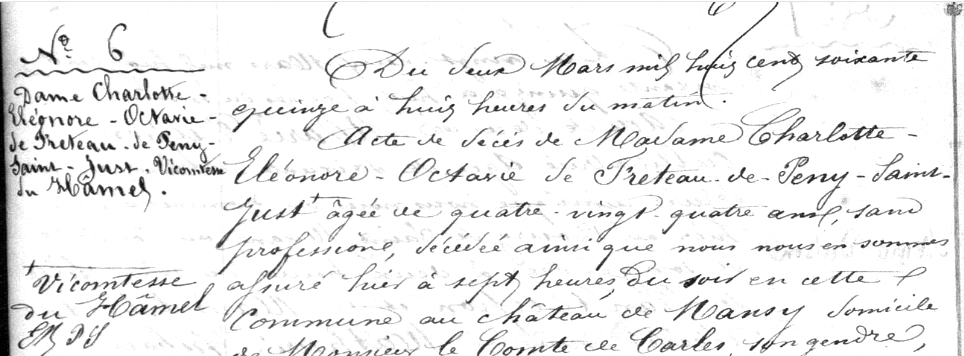 Nº 6
Dame Charlotte -
Eléonore - Octavie -
de Freteau - de Peny -
Saint - Just. Vicomtesse
du Hâmel.
Du deux Mars mil huit cent soixante
quinze à huit heures du matin.
Acte de décès de Madame Charlotte -
Eléonore - Octavie de Freteau - de - Peny - Saint -
Just † âgée de quatre - vingt quatre ans, sans
profession, décédée ainsi que nous nous en sommes
assuré hier à sept heures du soir en cette
Commune au château de Mansy domicile
de Monsieur le Comte de Carles, son gendre,
† Vicomtesse
du Hâmel